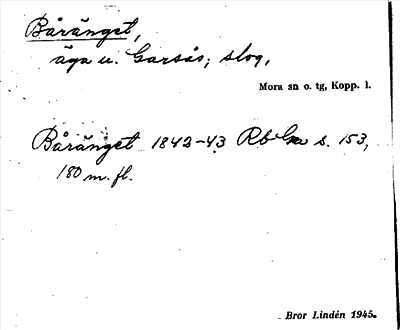 Båränget,
äga u. Garsås; slog,
Mora sn o. tg, Kopp. l.
Båränget 1842-43 Rb s. 153,
180 m. fl.
Bror Lindén 1945.